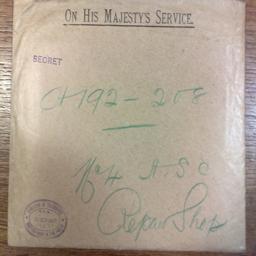 ON HIS MAJESTY'S SERVICE.
SECRET
CH 192 - 208
A.S.C
Repair Shop